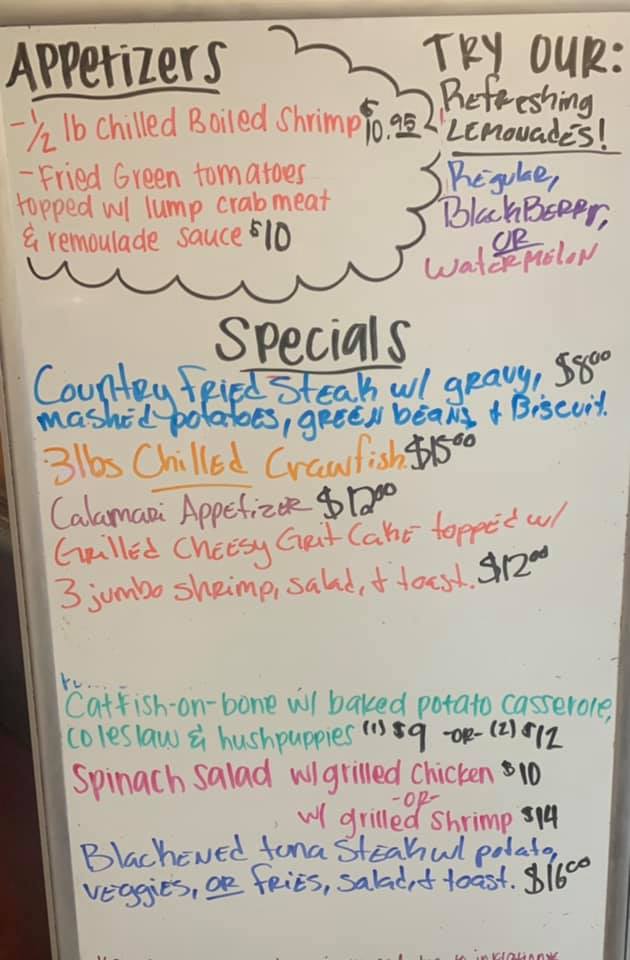 APPEtizERS
- 1/2 lb Chilled Boiled Shrimp $10.95
- Fried Green tomatoes
topped w/ lump crab meat
& remoulade sauce $10
TRY OUR:
Refreshing
LEMONADES!
Regular,
BlackBERRY,
OR
WatERMELON
Specials
Country Fried Steak w/ gravy, $8.00
mashed potatoes, green beans, & Biscuit.
3lbs Chilled Crawfish $15.00
Calamari Appetizer $12.00
Grilled Cheesy Grit Cake topped w/
3 jumbo shrimp, salad, & toast. $12.00
Catfish-on-bone w/ baked potato casserole,
coleslaw & hushpuppies (1) $9 -OR- (2) $12
Spinach Salad w/ grilled Chicken $10
-OR-
w/ grilled Shrimp $14
Blackened tuna Steak w/ potato,
veggies, OR fries, salad, & toast. $16.00